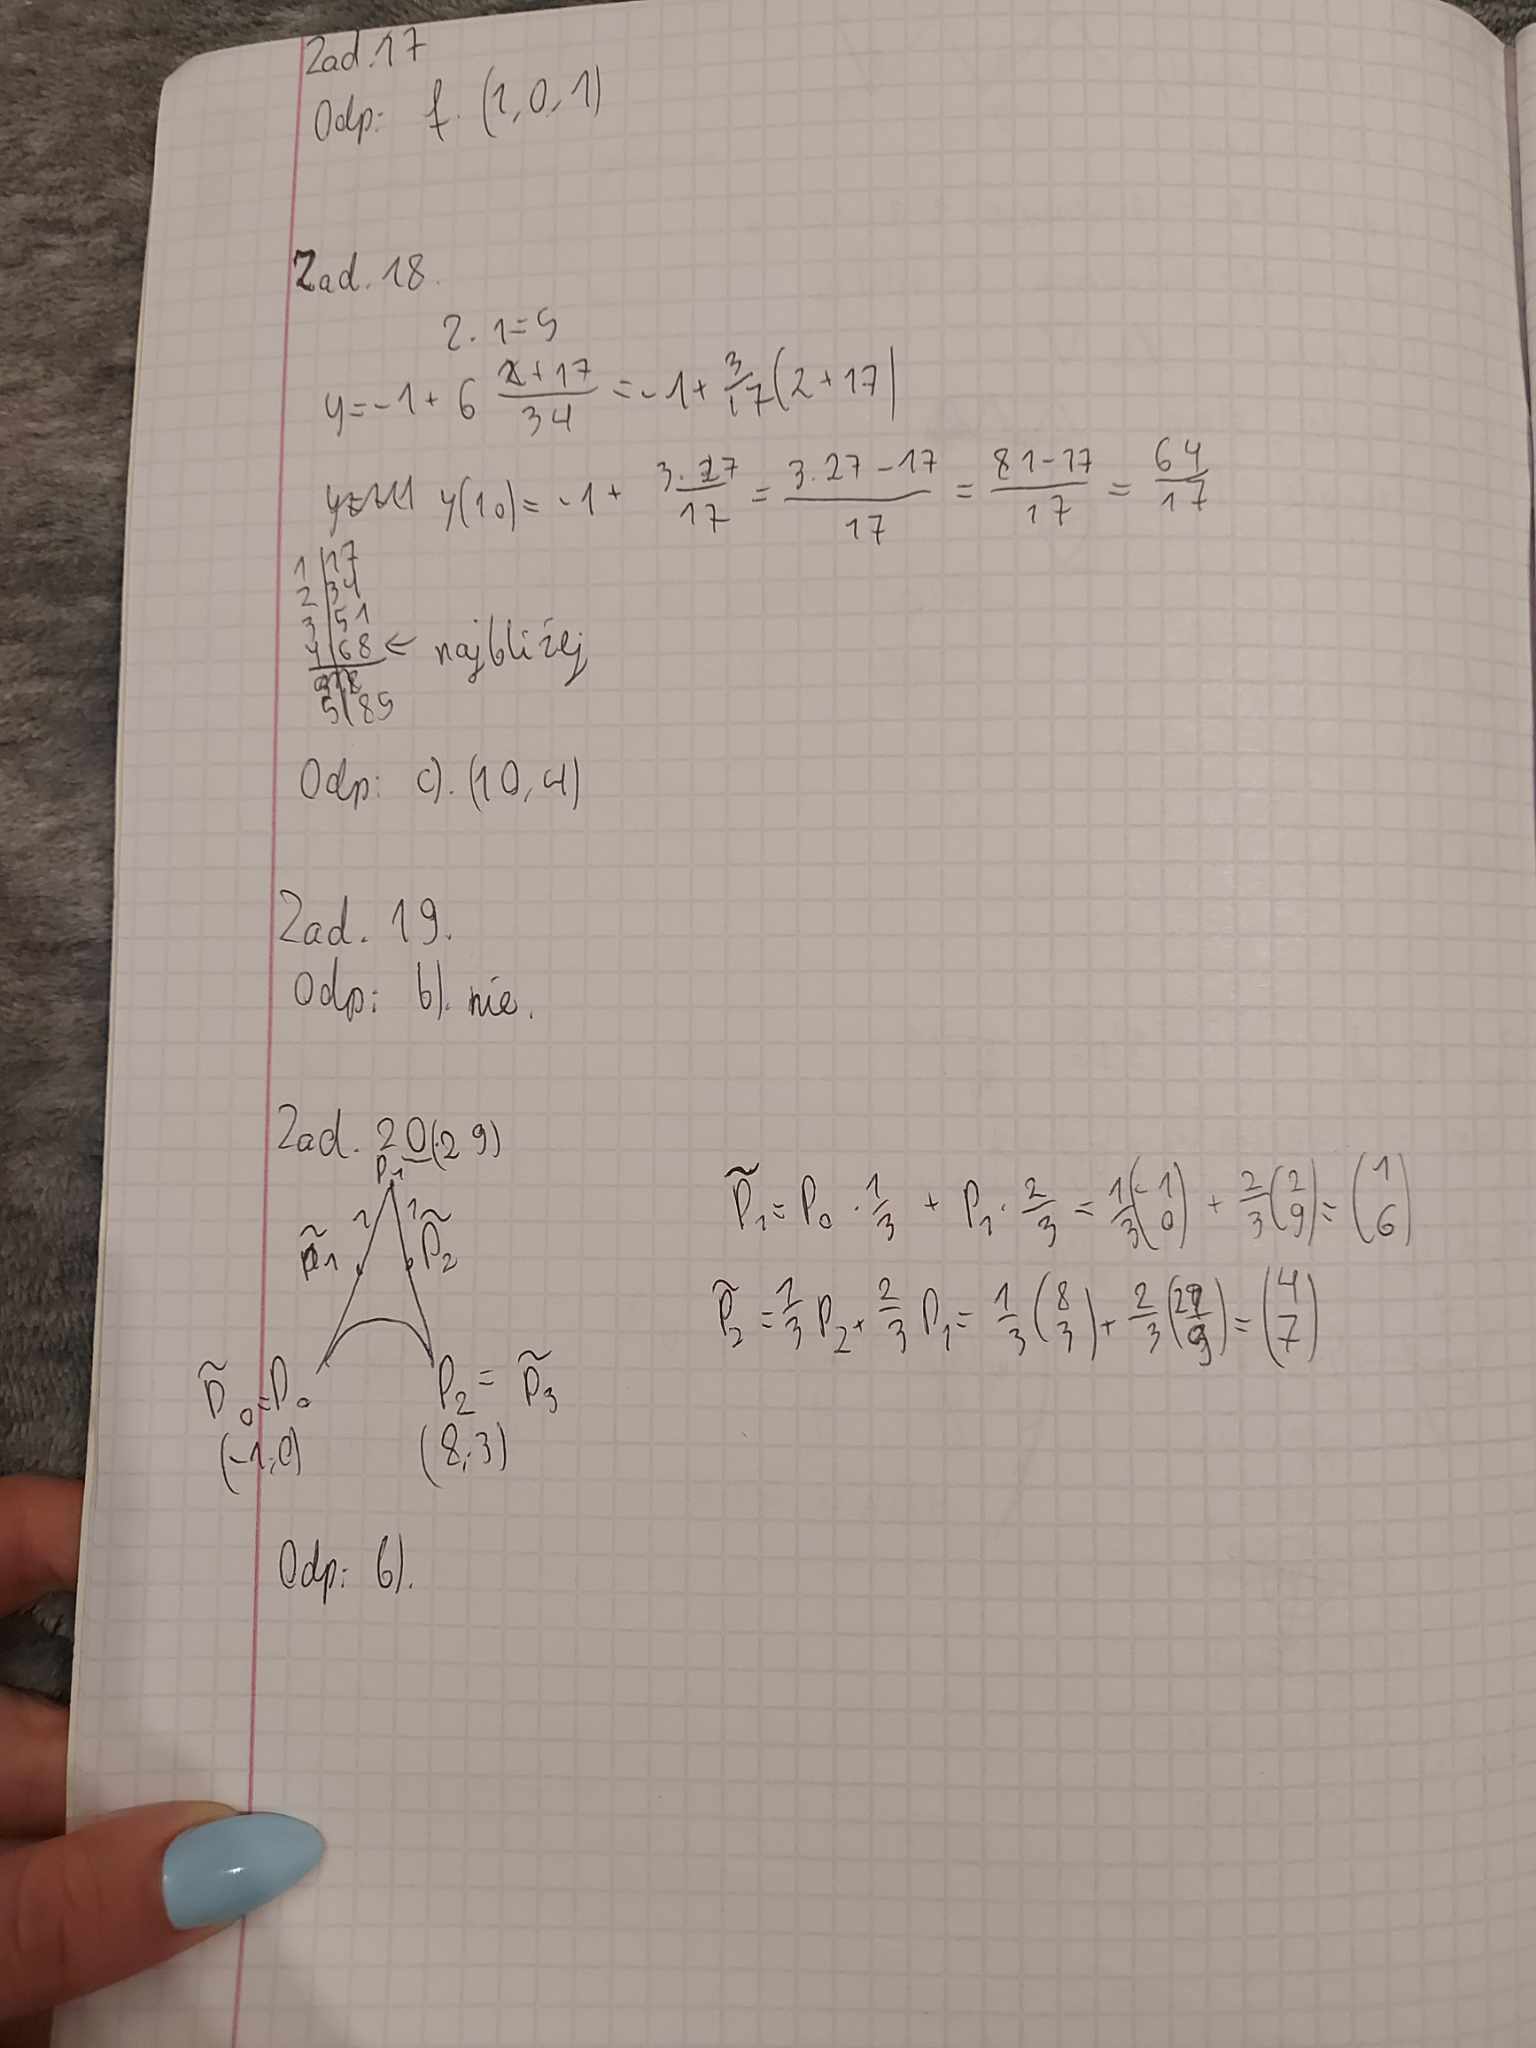 Zad.17
Odp: f. (1,0,1)
Zad. 18.
2. 1=5
y=-1+ 6 x+17/34 = -1+ 3/17(2+17|
y(10)= -1+ 3.27/17 = 3.27-17/17 = 81-17/17 = 64/17
1|17
2|34
3|51
4|68 ← najbliżej
5|85
Odp: c). (10,4)
Zad. 19.
Odp: b). nie.
Zad. 20(2 9)
P1
1 1
P̃1 P̃2
P̃0=P0 P2 = P̃3
(-1;0) (8;3)
P̃1= P0 · 1/3 + P1 · 2/3 = 1/3(-1 0) + 2/3(2 9)= (1 6)
P̃2 = 1/3 P2+ 2/3 P1= 1/3(8 3)+ 2/3(2 9)= (4 7)
Odp: b).